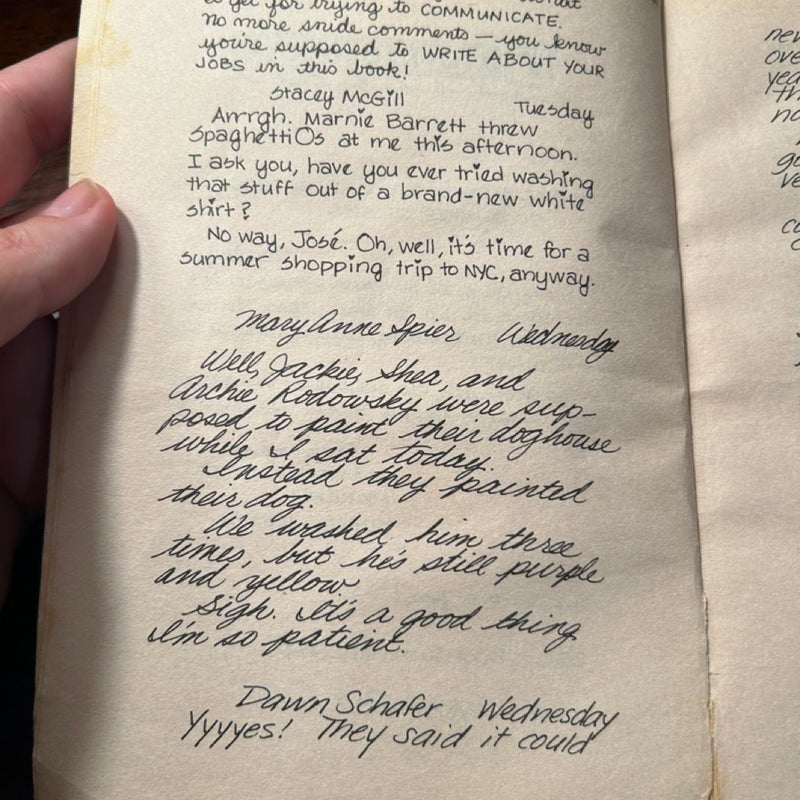 get for trying to COMMUNICATE.
no more snide comments — you know
you're supposed to WRITE ABOUT YOUR
JOBS in this book!
Stacey McGill Tuesday
Arrrgh. Marnie Barrett threw
SpaghettiOs at me this afternoon.
I ask you, have you ever tried washing
that stuff out of a brand-new white
shirt?
No way, José. Oh, well, it's time for a
summer shopping trip to NYC, anyway.
Mary Anne Spier Wednesday
Well, Jackie, Shea, and
Archie Rodowsky were sup-
posed to paint their doghouse
while I sat today.
Instead they painted
their dog.
We washed him three
times, but he's still purple
and yellow.
Sigh. It's a good thing
I'm so patient.
Dawn Schafer Wednesday
Yyyyes! They said it could